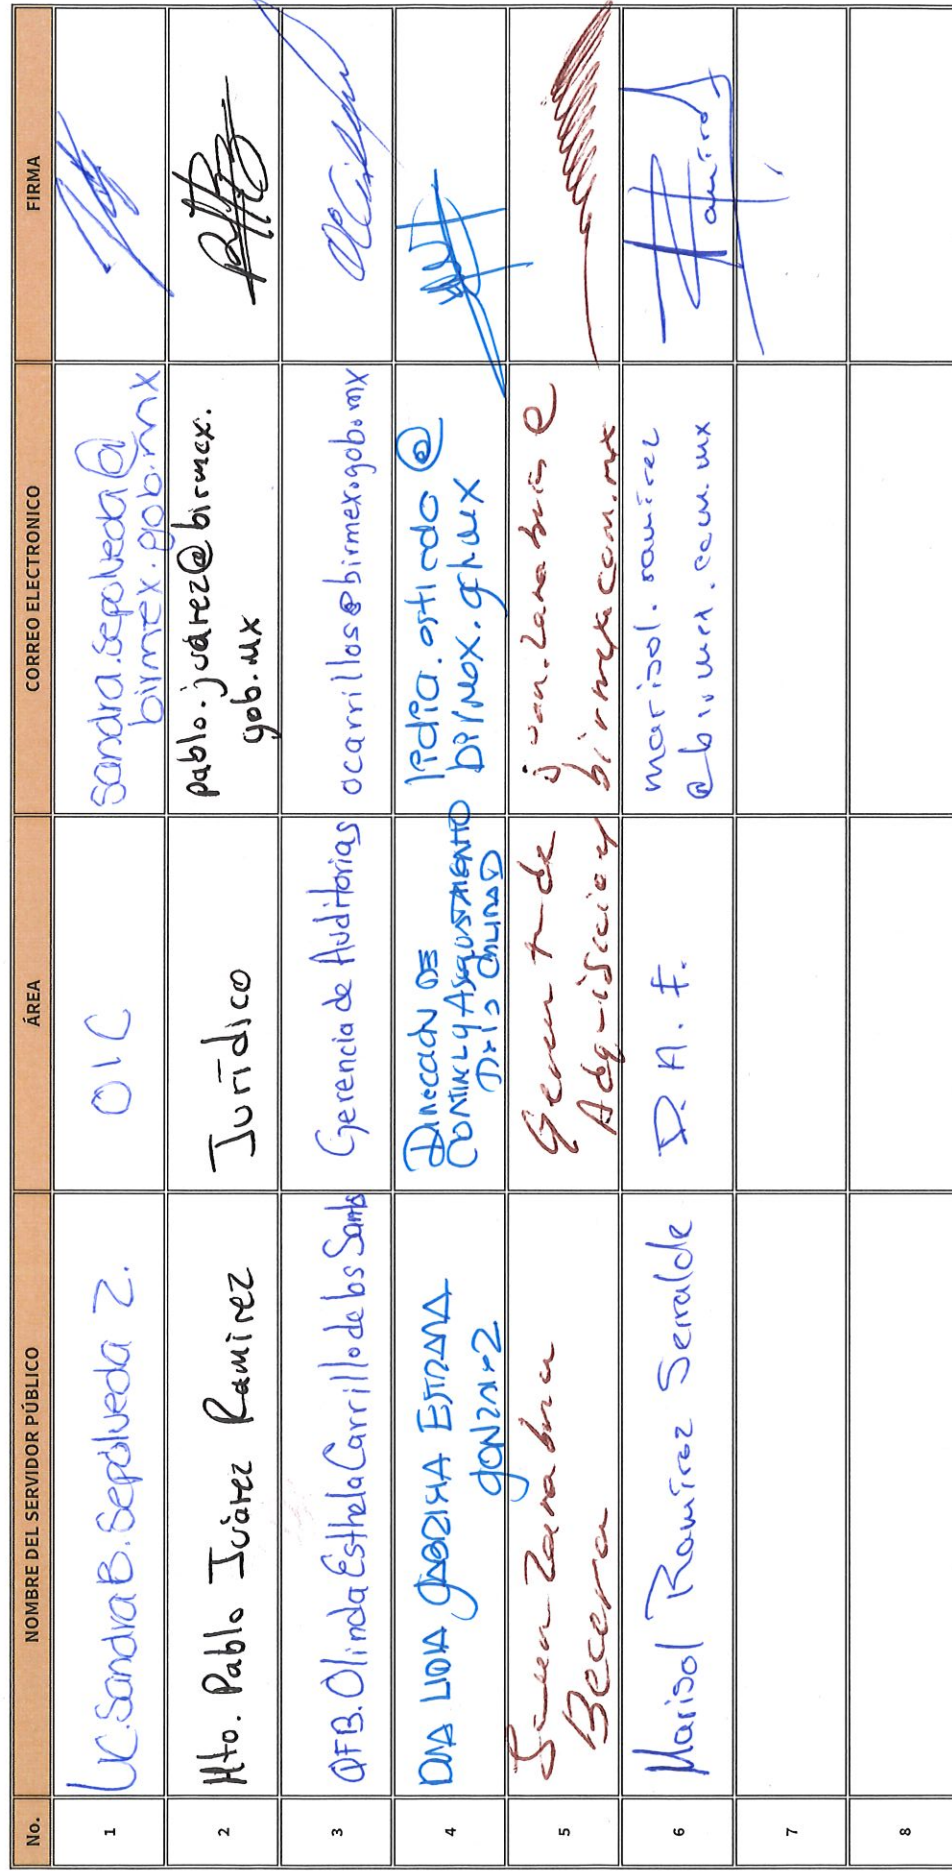 No. NOMBRE DEL SERVIDOR PÚBLICO ÁREA CORREO ELECTRONICO FIRMA
1 LIC. Sandra B. Sepúlveda Z. OIC sandra.sepulveda@
birmex.gob.mx
2 Mto. Pablo Juárez Ramirez Jurídico pablo.juarez@birmex.
gob.mx
3 QFB. Olinda Esthela Carrillo de los Santos Gerencia de Auditorias ocarrillos@birmex.gob.mx
4 LIDIA GABRIELA ESTRADA
GONZALEZ
DIRECCION DE
CONTROL Y ASEGURAMIENTO
DE LA CALIDAD
@
birmex.gob.mx
5 Juan Zanabria
Becerra
Gerente de
Adquisiciones
juan.zanabria@
birmex.com.mx
6 Marisol Ramírez Serralde D. A. F. marisol.ramirez
@birmex.com.mx
Ramirez
7
8